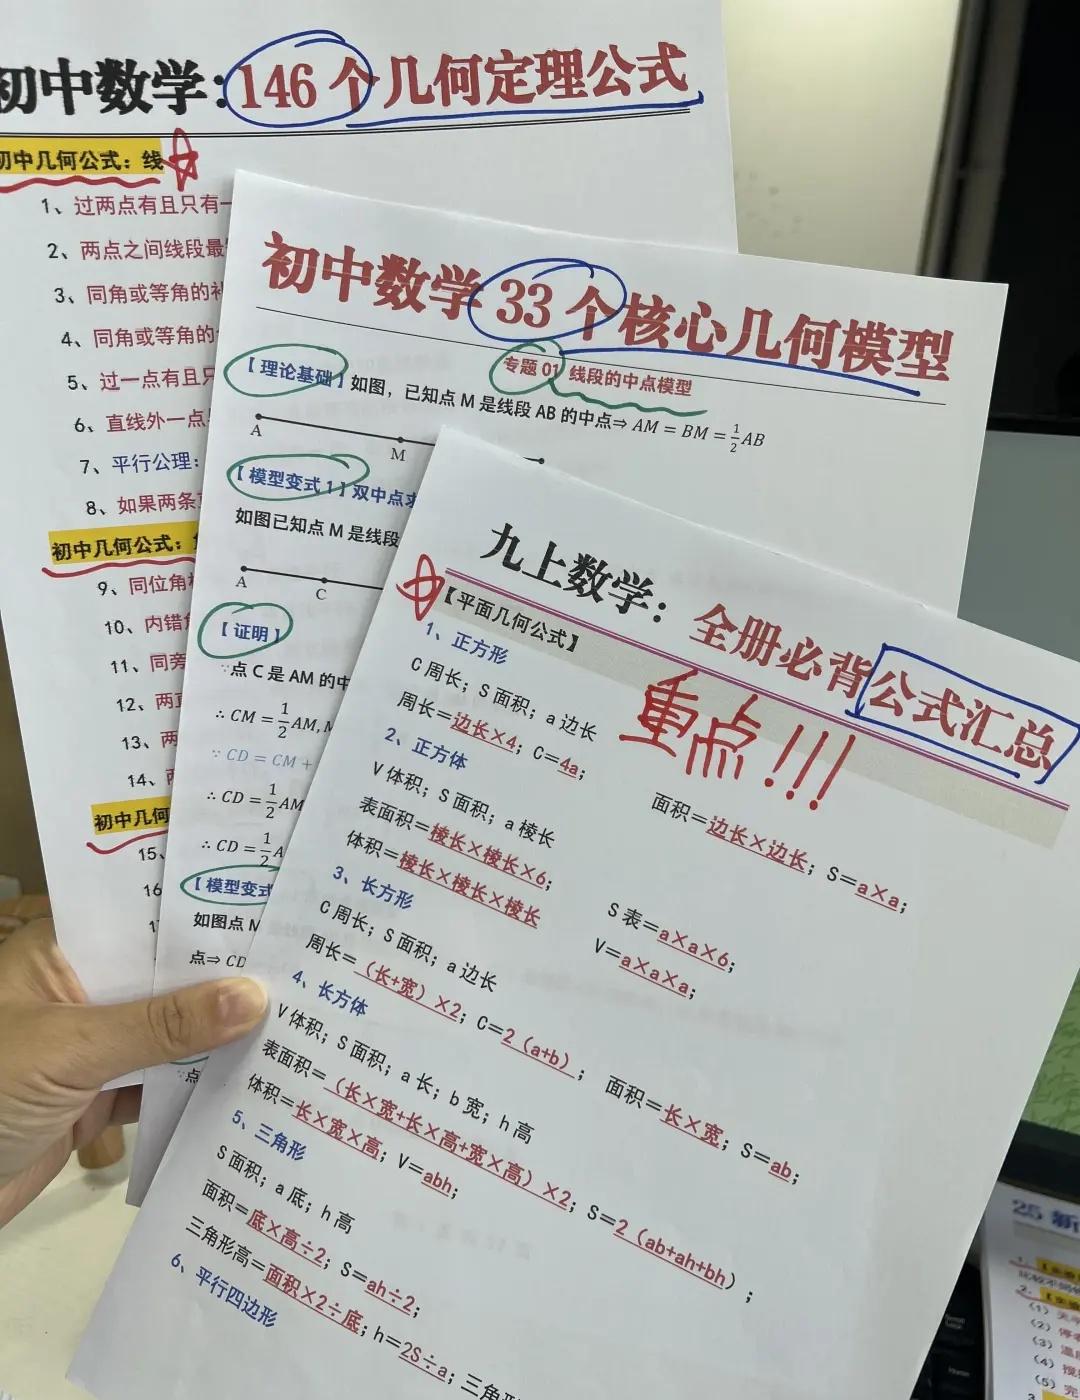 初中数学:146个几何定理公式
初中几何公式：线
1、过两点有且只有一
2、两点之间线段最
3、同角或等角的补
4、同角或等角的
5、过一点有且只
6、直线外一点
7、平行公理：
8、如果两条
初中几何公式：
9、同位角
10、内错角
11、同旁
12、两直
13、两
14、两
初中几何
15、
16
初中数学33个核心几何模型
专题01 线段的中点模型
【理论基础】如图，已知点M是线段AB的中点⇒ AM = BM = 1/2 AB
A
M
【模型变式1】双中点求
如图已知点M是线段
A
C
【证明】
∵点C是AM的中
∴ CM = 1/2 AM, M
∵ CD = CM +
∴ CD = 1/2 AM
∴ CD = 1/2 A
【模型变式
如图点M
点⇒ CD
∵点
九上数学：全册必背公式汇总
【平面几何公式】
重点!!!
1、正方形
C周长；S面积；a边长
周长=边长×4；C=4a；
面积=边长×边长；S=a×a；
2、正方体
V体积；S面积；a棱长
表面积=棱长×棱长×6；
S表=a×a×6；
体积=棱长×棱长×棱长
V=a×a×a；
3、长方形
C周长；S面积；a边长
周长=（长+宽）×2；C=2（a+b）； 面积=长×宽；S=ab；
4、长方体
V体积；S面积；a长；b宽；h高
表面积=（长×宽+长×高+宽×高）×2；S=2（ab+ah+bh）；
体积=长×宽×高；V=abh；
5、三角形
S面积；a底；h高
面积=底×高÷2；S=ah÷2；
三角形高=面积×2÷底；h=2S÷a；三角形
6、平行四边形
25 新
(1)
(2)
(3)
(4)
(5)